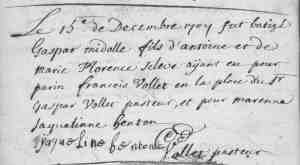 Le 15e de Decembre 1707 fut batizé
Gaspar midolle fils d'antoine et de
marie florence ayant eu pour
parin françois Vollet en la place du Sr
Gaspar Vollet pasteur, et pour marenna
Jaqualiane benton
Jaqueline benton
Vollet pasteur